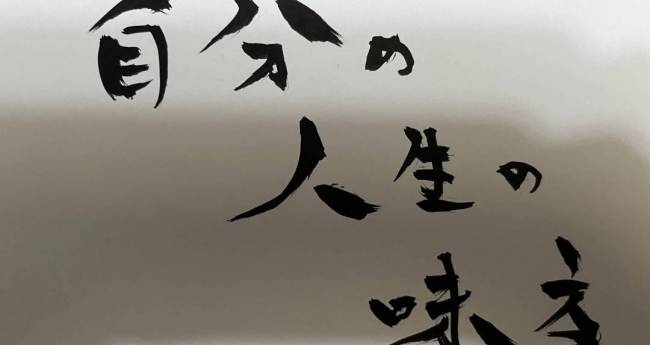 自分の
人生の
味